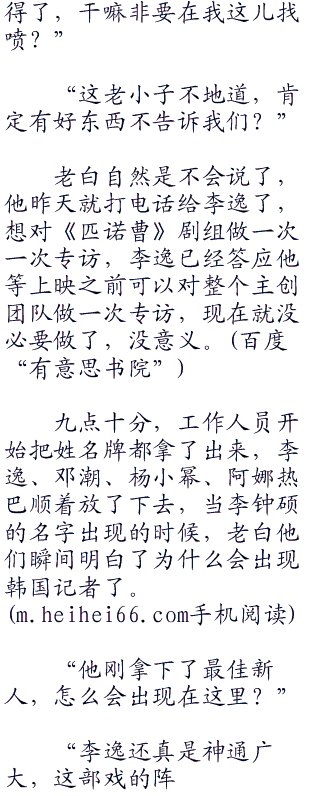 得了，干嘛非要在我这儿找
喷？”
“这老小子不地道，肯
定有好东西不告诉我们？”
老白自然是不会说了，
他昨天就打电话给李逸了，
想对《匹诺曹》剧组做一次
一次专访，李逸已经答应他
等上映之前可以对整个主创
团队做一次专访，现在就没
必要做了，没意义。(百度
“有意思书院”)
九点十分，工作人员开
始把姓名牌都拿了出来，李
逸、邓潮、杨小幂、阿娜热
巴顺着放了下去，当李钟硕
的名字出现的时候，老白他
们瞬间明白了为什么会出现
韩国记者了。
(m.heihei66.com手机阅读)
“他刚拿下了最佳新
人，怎么会出现在这里？”
“李逸还真是神通广
大，这部戏的阵